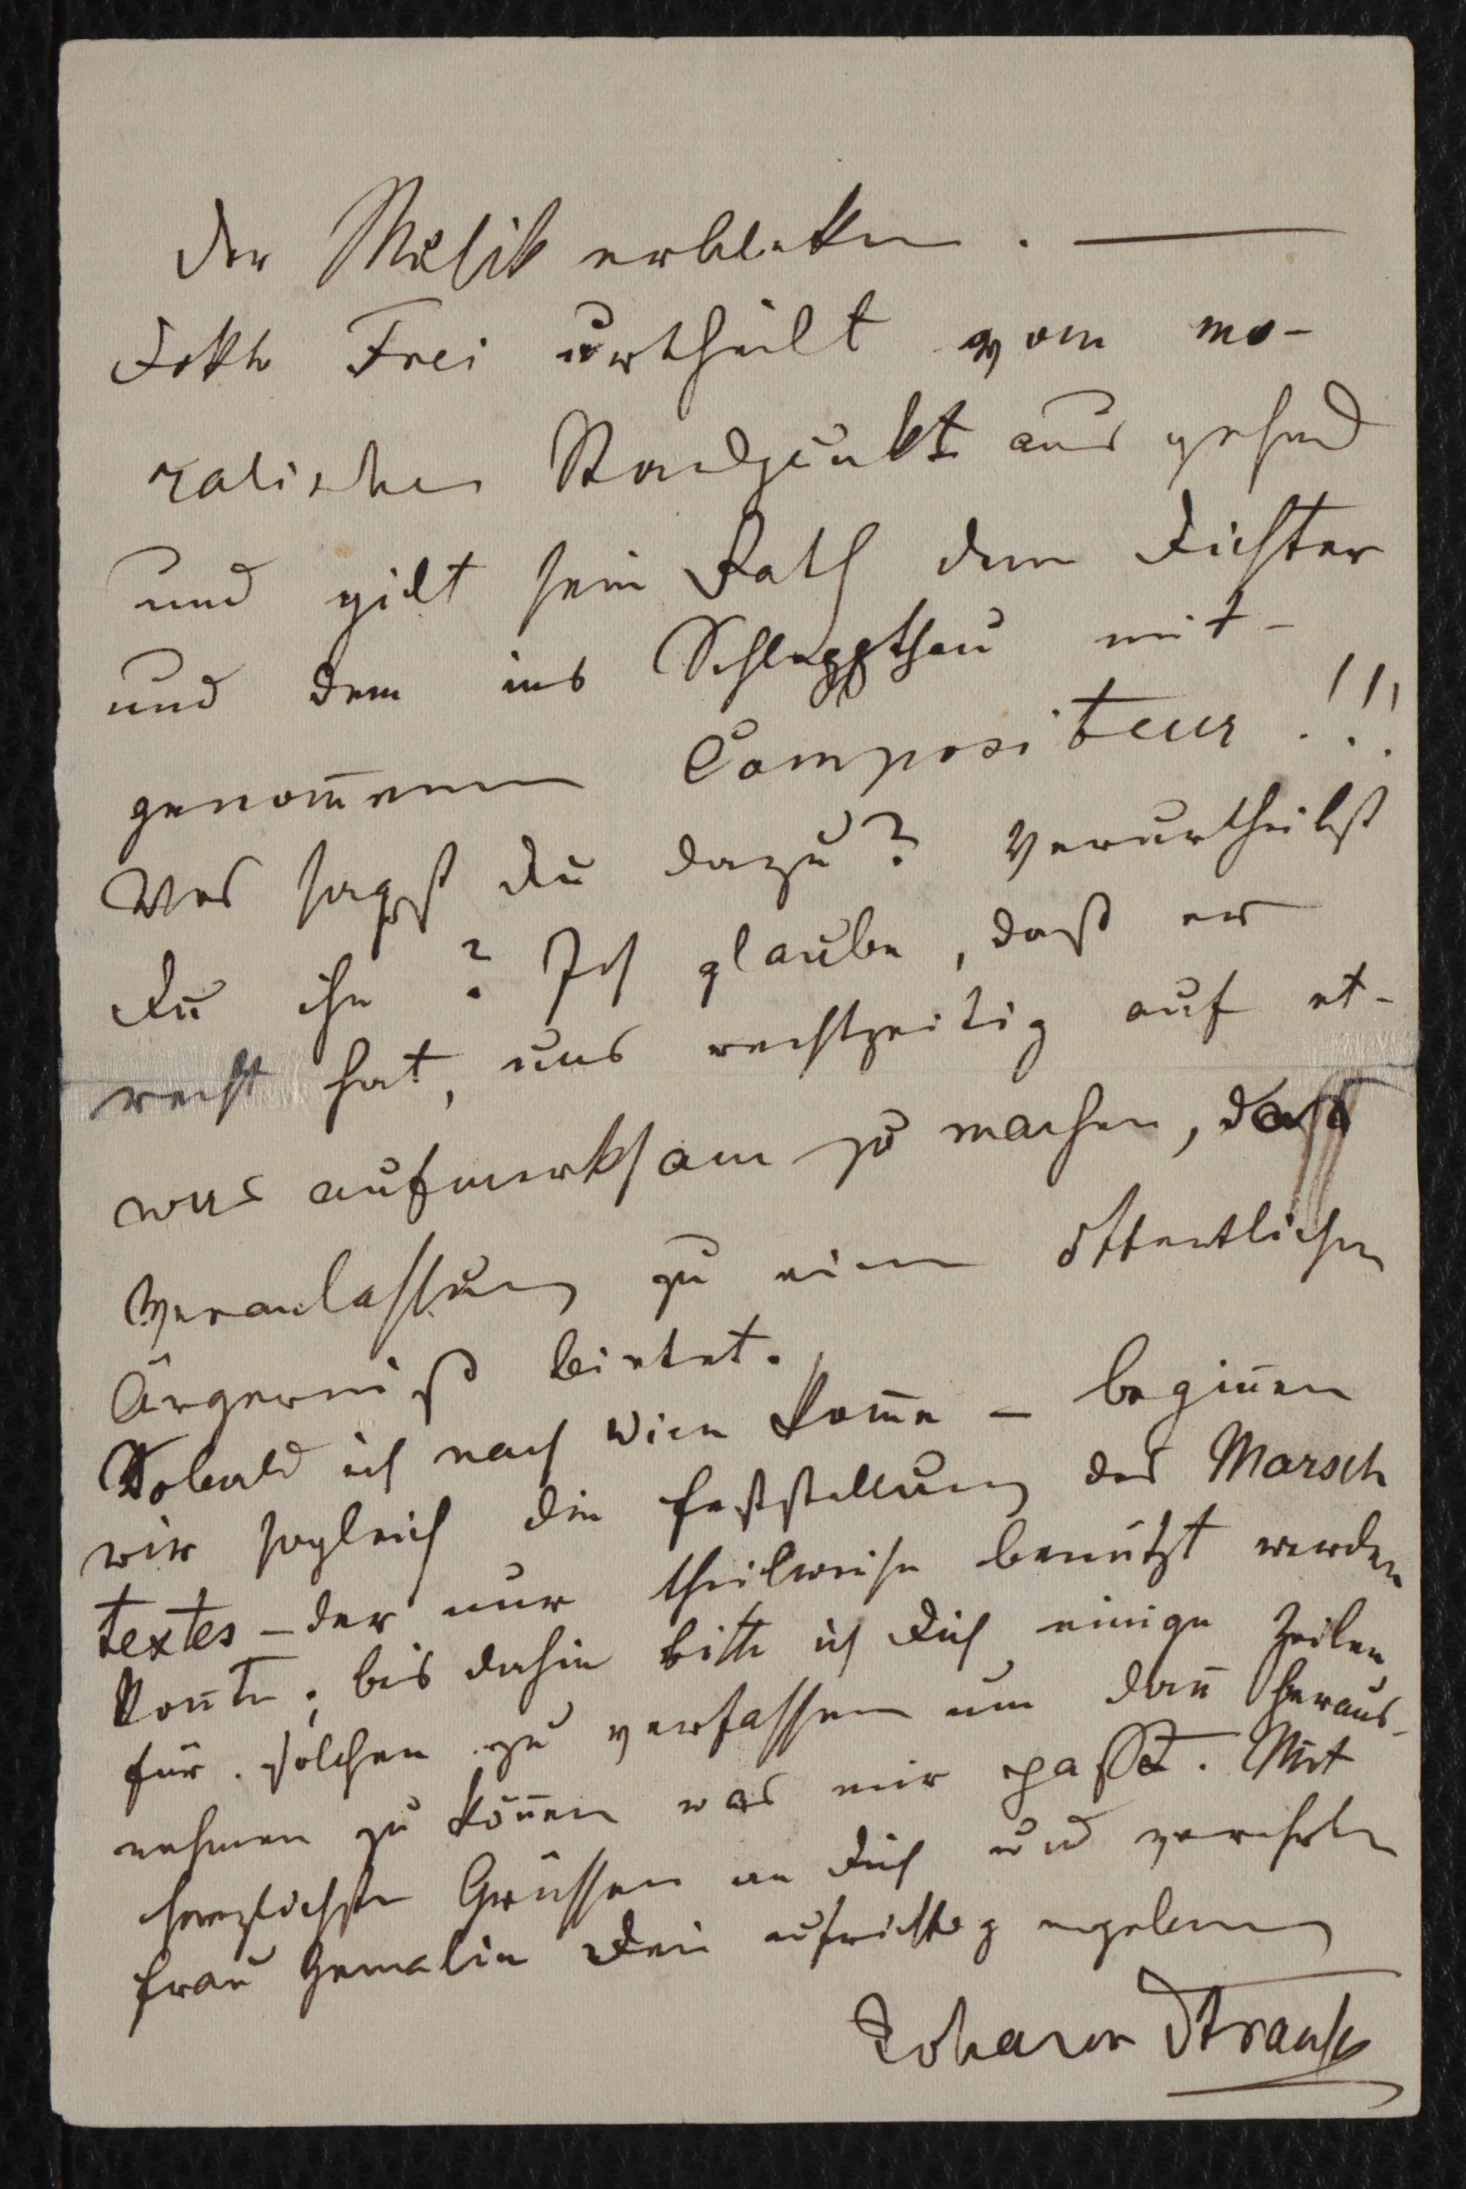 der Musik erblicken. —
Doktor Frei urtheilt vom mo-
ralischen Standpunkt aus gehend
und gilt sein Rath dem Dichter
und dem ins Schlepptau mit-
genom̄enen Compositeur!!!
Was sagst Du dazu? Verurtheilst
Du ihn? Ich glaube, daß er
recht hat, uns rechtzeitig auf et-
was aufmerksam zu machen, daß
Veranlassung zu einem öffentlichen
Ärgerniß bietet.
Sobald ich nach Wien kom̄e – begin̄en
wir sogleich die Feststellung des Marsch
textes – der nur theilweise benützt werden
kon̄te; bis dahin bitte ich Dich einige Zeilen
für solchen zu verfassen um dan̄ heraus-
nehmen zu kön̄en was mir paßt. Mit
herzlichsten Grüssen an Dich und verehrte
Frau Gemalin Dein aufrichtig ergebener
Johann Strauss